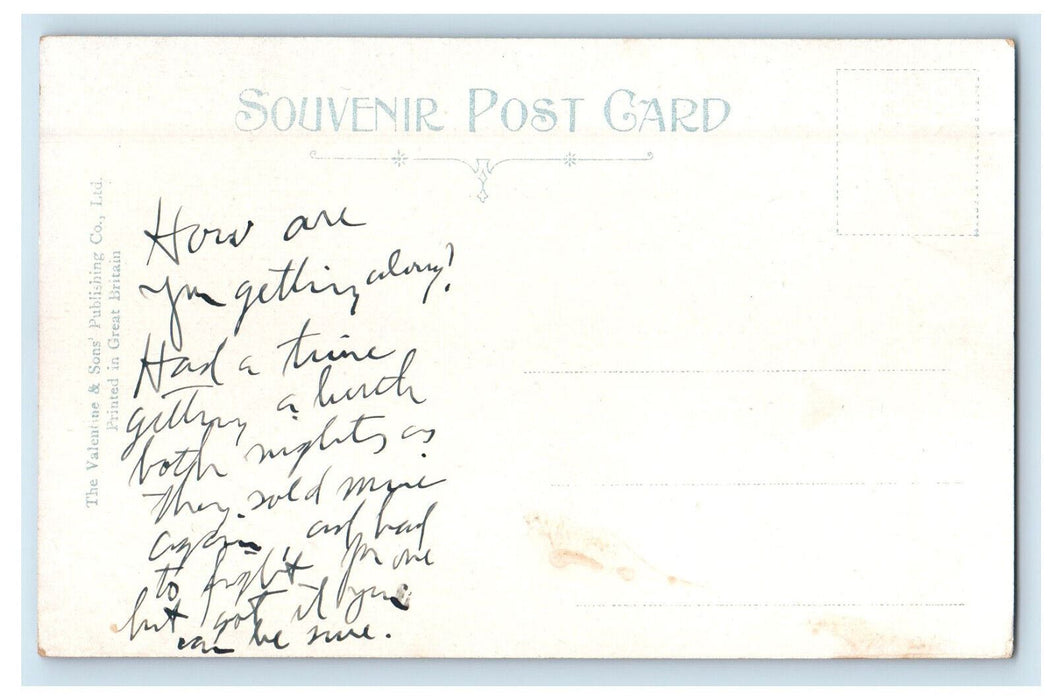 SOUVENIR POST CARD
The Valentine & Sons' Publishing Co., Ltd.
Printed in Great Britain
How are
you getting along?
Had a time
getting a berth
both nights as
they sold mine
again, and had
to fight for one
but got it you
can be sure.